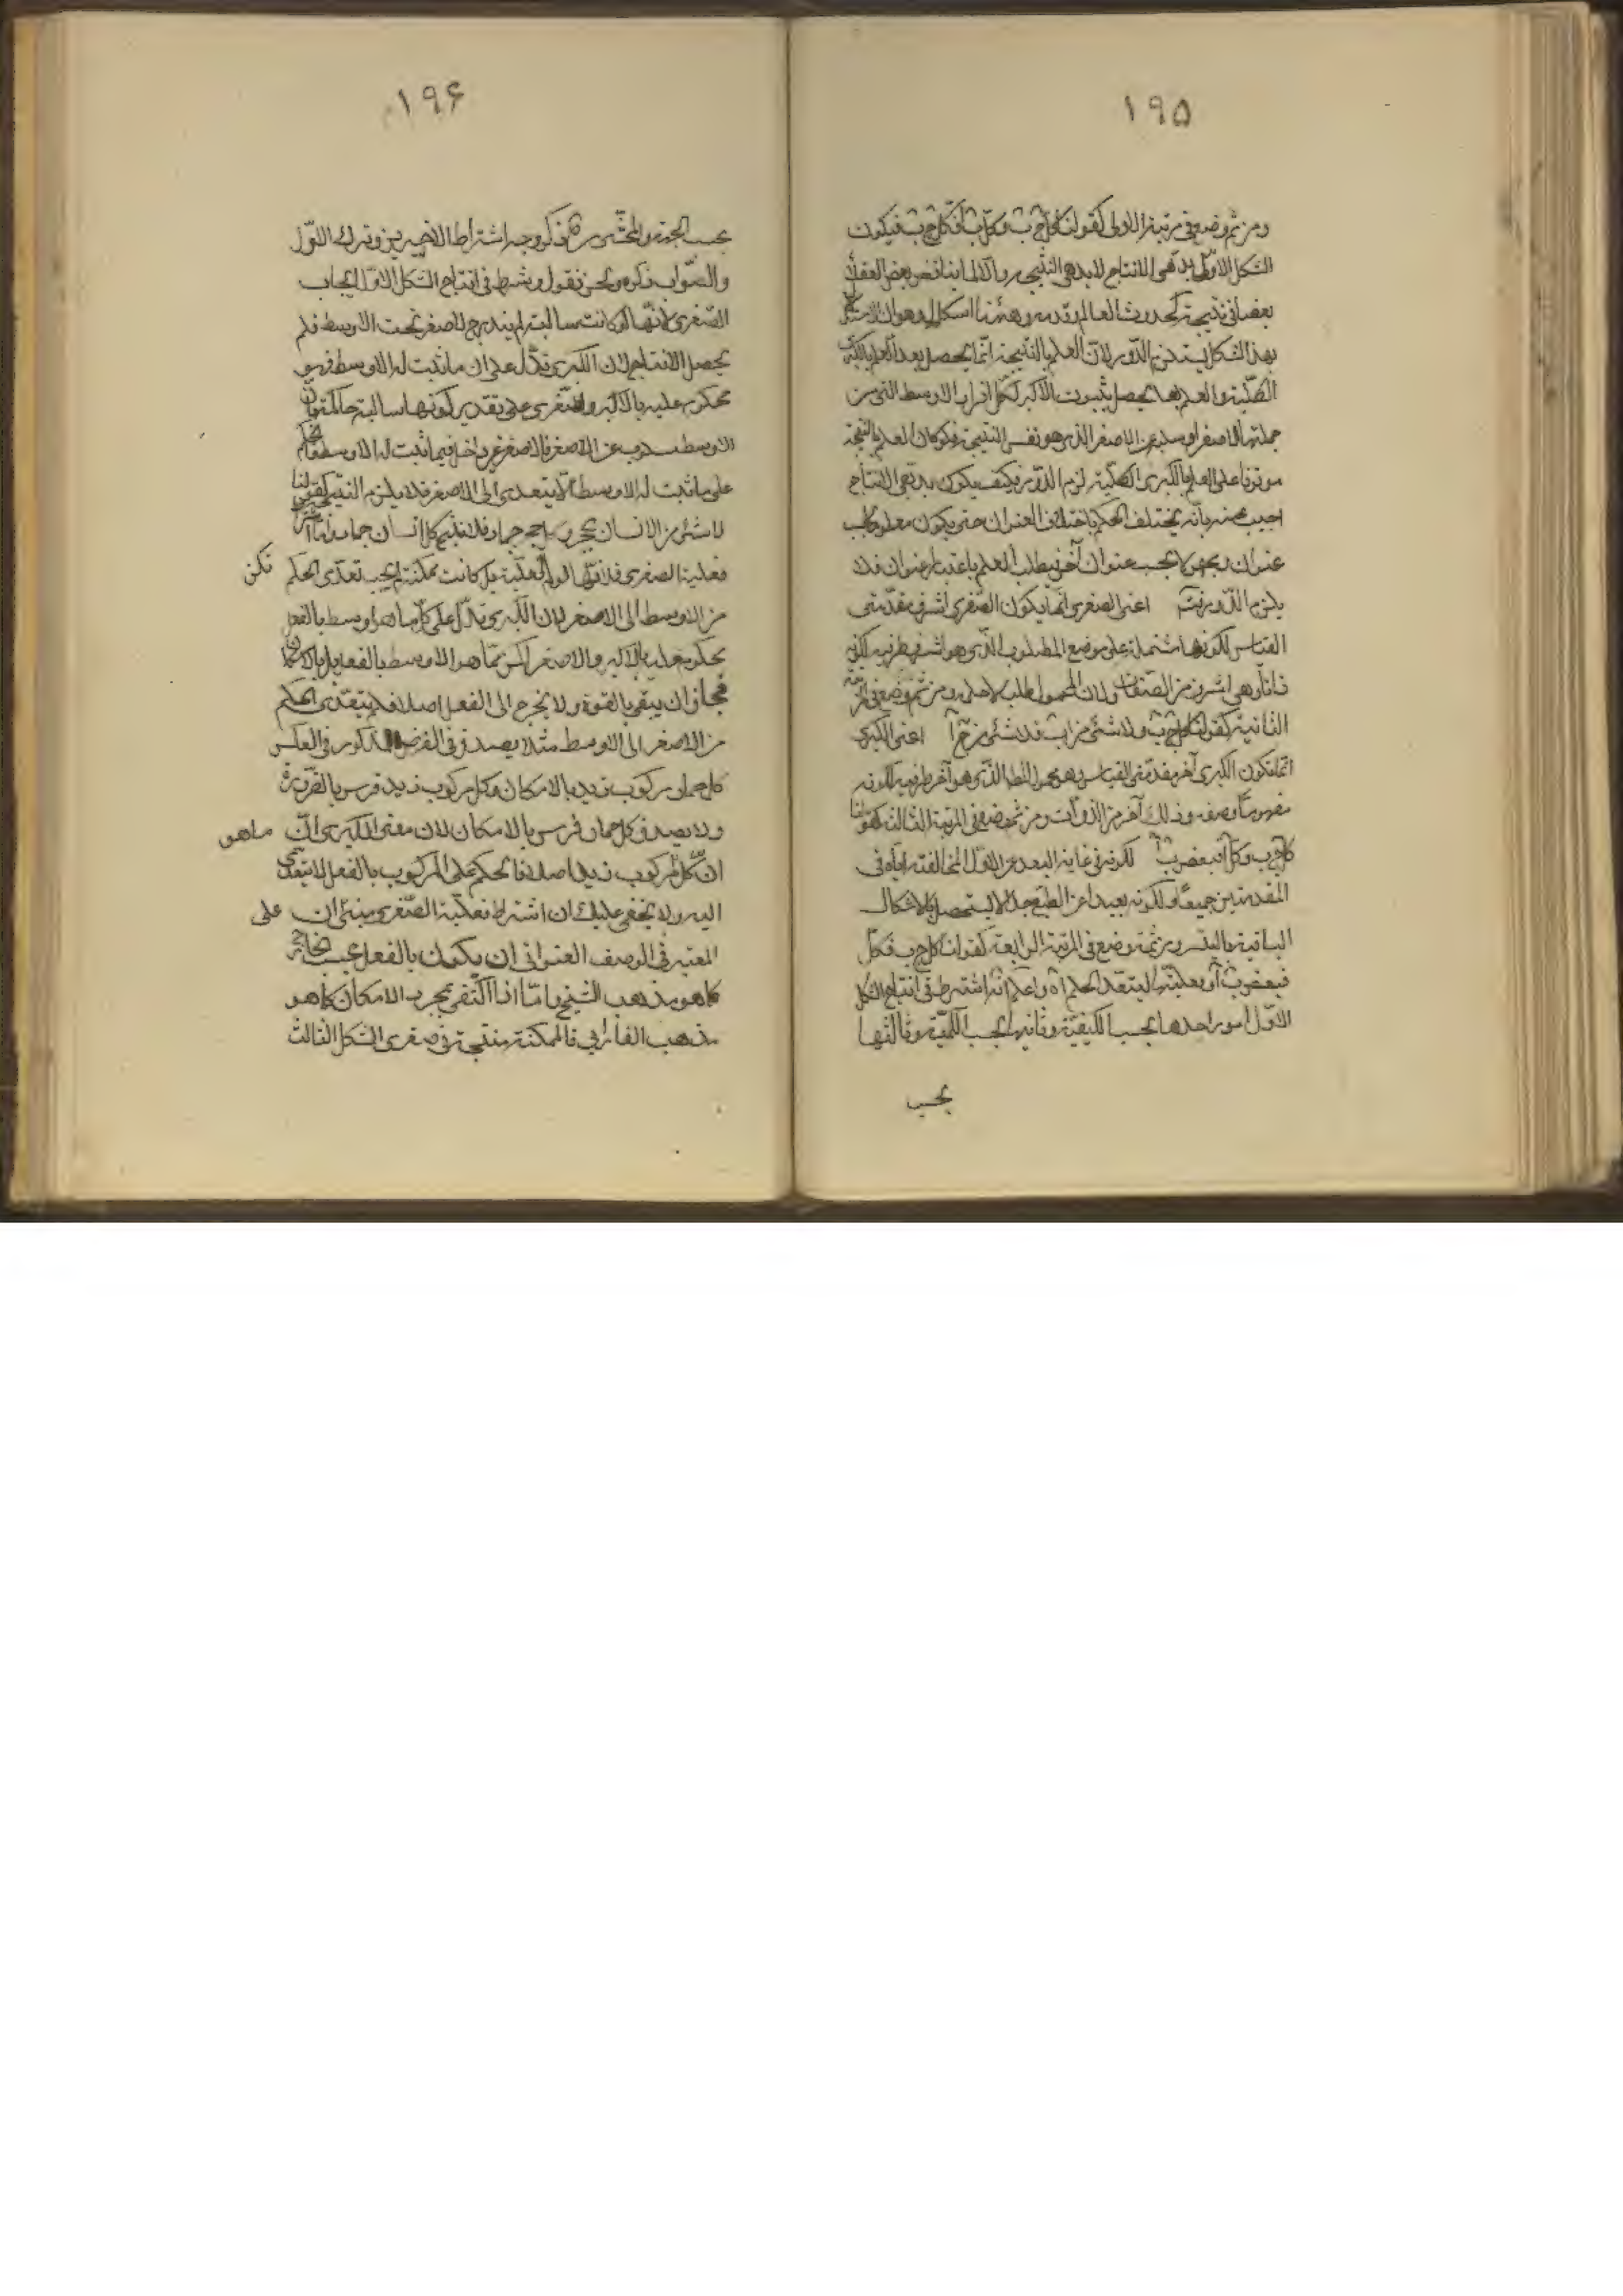 ١٩۵
ومن ثم وضع في مرتبة الاولى كقولنا كل ج ب وكل ب ا فكل ج ب فيكون
الشكل الاول بديهى الانتاج لا بديهى النتيجه والا لما يناقض بعض العقلاء
بعضا في نتيجة كحدوث العالم وقدمه وههنا اشكال وهو ان الاستدلال
بهذا الشكل يستلزم الدور لان العلم بالنتيجة انما يحصل بعد العلم بالكبرى
الكلية والعلم بها يحصل بثبوت الاكبر لكل افراد الاوسط التى من
جملتها الاصغر او سلبه عن الاصغر الذى هو نفس النتيجة فلو كان العلم بالنتيجة
موقوفا على العلم بالكبرى الكلية لزم الدور فكيف يكون بديهى الانتاج
اجيب عنه بانه يختلف الحكم باختلاف العنوان حتى يكون معلوما بحسب
عنوان ومجهولا بحسب عنوان آخر فيطلب العلم باعتبار عنوان فلا
يلزم الدور اعنى الصغرى انما يكون الصغرى اشرف مقدمتى
القياس لكونها مشتملة على موضع المطلوب الذى هو اشرف طرفيه لكونه
ذاتا وهى اشرف من الصفات ولان المحمول يطلب لاجله ومن ثم وضع في المرتبة
الثانية كقولنا كل ج ب ولا شئ من ا ب فلا شئ من ج ا اعنى الكبرى
انما تكون الكبرى آخر مقدمتى القياس الذى هو آخر طرفيه لكونه
مفهوما وصفه وذلك آخر من الذوات ومن ثم وضع في المرتبة الثالثة كقولنا
كل ج ب وكل ج ا فبعض ب ا لكونه في غاية البعد عن الاول لمخالفته اياه في
المقدمتين جميعا ولكونه بعيدا عن الطبع جدا لا يستحصل الاشكال
الباقية ومن ثمة وضع في المرتبة الرابعة كقولنا كل ج ب فكل
فبعض ب ا وفعليتها ليتعدى الحكم آه واعلم انه اشترط في انتاج الشكل
الاول امور احدها بحسب الكيفية وثانيها بحسب الكمية وثالثها
بحسب
١٩۶
بحسب الجهة والمحشى ذكر وجه اشتراط الاخيرين وترك الاول
والصواب ذكره ونحن نقول ويشترط في انتاج الشكل الاول ايجاب
الصغرى لانها لو كانت سالبة لم يندرج الاصغر تحت الاوسط فلم
يحصل الانتاج لان الكبرى تدل على ان ما ثبت له الاوسط فهو
محكوم عليه بالاكبر والصغرى على تقدير كونها سالبة حاكمة بان
الاوسط مسلوب عن الاصغر فالاصغر غير داخل فيما ثبت له الاوسط فالحكم
على ما ثبت له الاوسط لا يتعدى الى الاصغر فلا يلزم النتيجة كقولنا
لا شئ من الانسان بحجر وكل حجر جماد فلا ينتج كل انسان جماد واما اشتراط
فعلية الصغرى فلانها لو لم تكن فعلية بل كانت ممكنة لم يجب تعدى الحكم
من الاوسط الى الاصغر لان الكبرى تدل على كل ما هو اوسط بالفعل
محكوم عليه بالاكبر والاصغر ليس مما هو الاوسط بالفعل بل بالامكان
فجاز ان يبقى بالقوة ولا يخرج الى الفعل اصلا فلم يتعدى الحكم
من الاصغر الى الاوسط مثلا يصدق في الفرض المذكور في العكس
كل حمار مركوب زيد بالامكان وكل مركوب زيد فرس بالضرورة
ولا يصدق كل حمار فرس بالامكان لان معنى الكبرى ان ماهو
ان كل مركوب زيد اصلا فالحكم على المركوب بالفعل لا يتعدى
اليه ولا يخفى عليك ان اشتراط فعلية الصغرى مبنى ان على
المعتبر في الوصف العنوانى ان يكون بالفعل بحسب الخارج
كما هو مذهب الشيخ واما اذا اكتفى بمجرد الامكان كما هو
مذهب الفارابي فالممكنة منتجة في صغرى الشكل الثالث